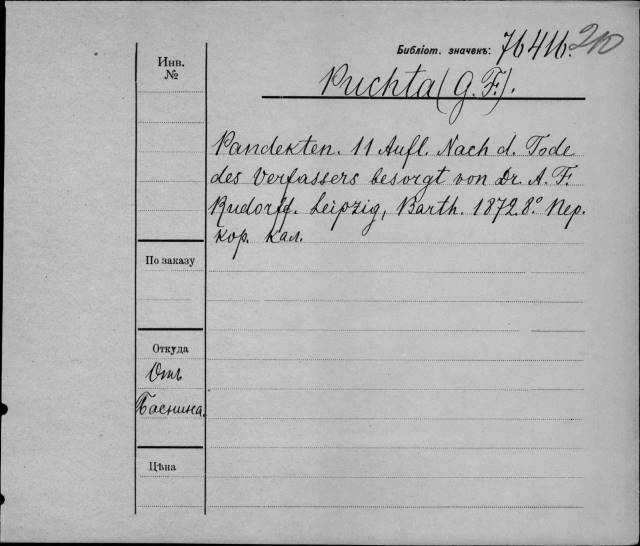 Библіот. значекъ: 76416.
Инв.
№
Puchta (G. F.).
Pandekten. 11 Aufl. Nach d. Tode
des Verfassers besorgt von Dr. A. F.
Rudorff. Leipzig, Barth. 1872. 8.° Пер.
кор. кал.
По заказу
Откуда
Отъ
Баснина.
Цѣна